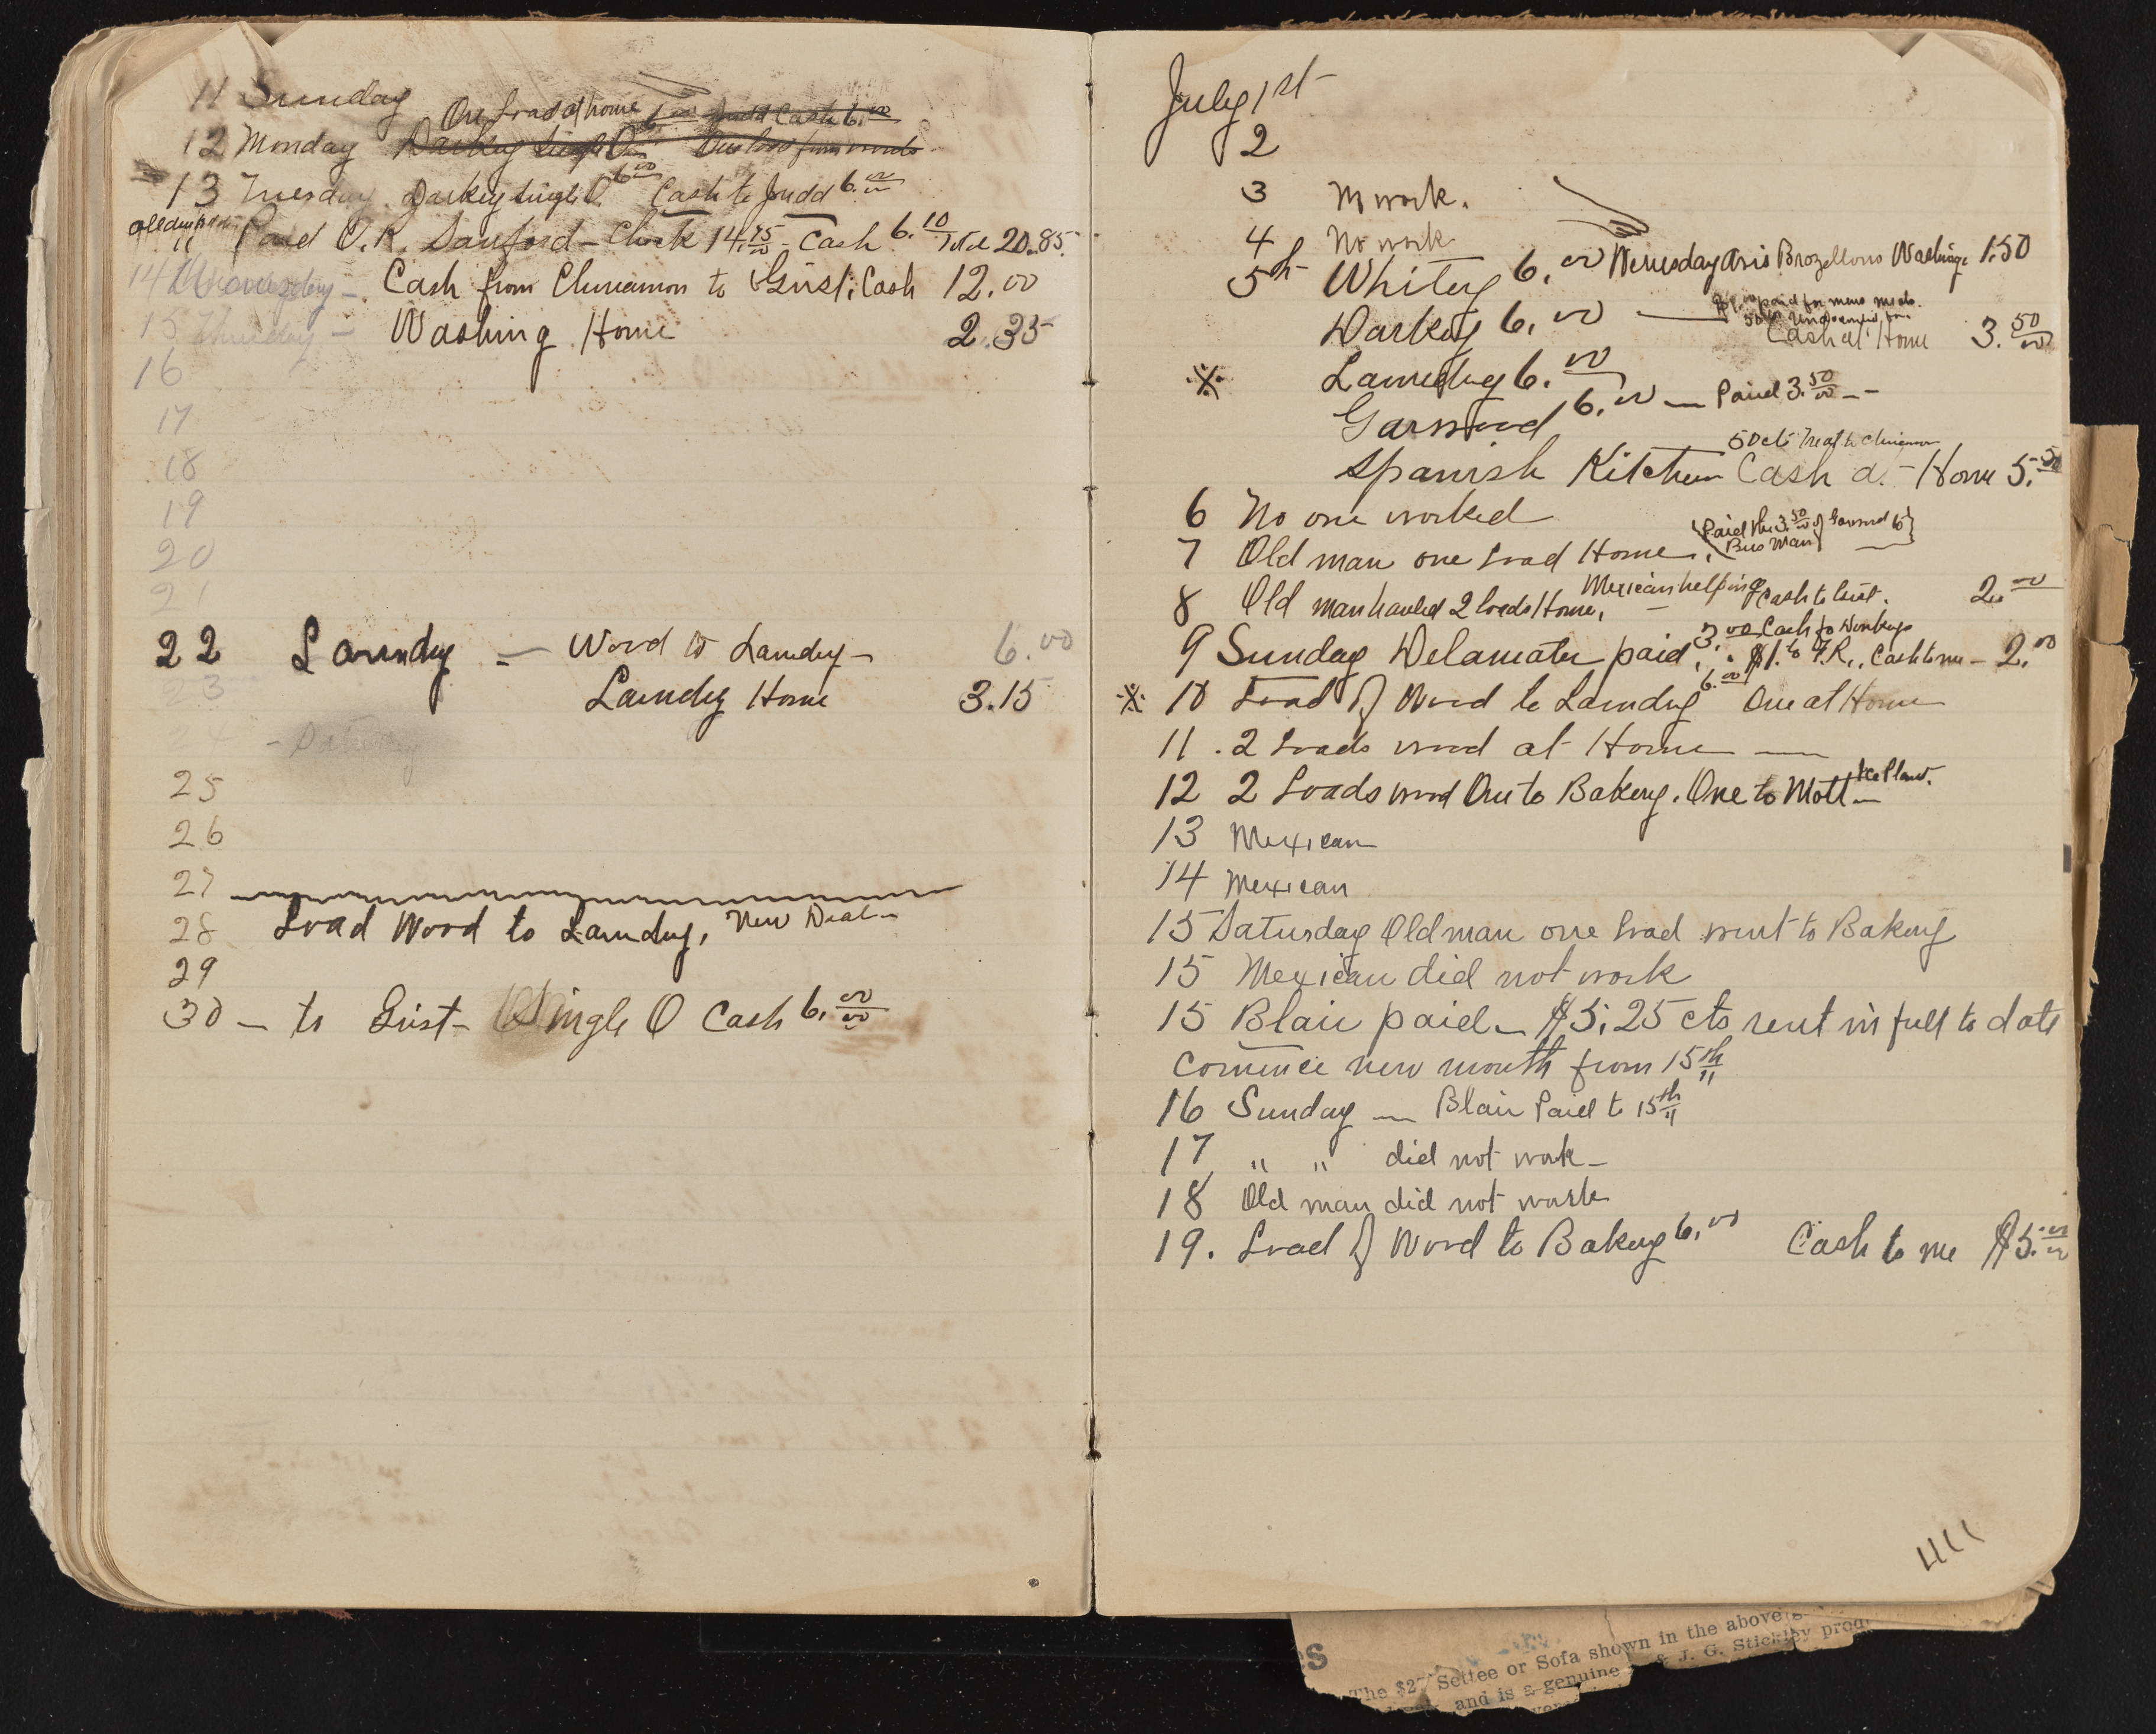 11 Sunday
One Load at home 6.00 Judd Cash 6.00
12 Monday Darkey Single O. One load from woods
13 Tuesday. Darkey Single O. 6.00 Cash to Judd 6.00
" Paid O.R. Sanford - Check 14.75 - Cash 6.10 Total 20.85
14 Wednesday - Cash from Chinamon to Gust. Cash 12.00
15 Thursday - Washing Home 2.35
16
17
18
19
20
21
22 Laundry - Wood to Laundry - 6.00
23 Laundry Home 3.15
24 - Saturday
25
26
27
28 Load Wood to Laundry, New Deal -
29
30 - to Gust - Single O Cash 6.00
July 1st
2
3 No work.
4 No work
5th Whitey 6.00 Wenesday Washing 1.50
paid for
Darkey 6.00 — Cash at Home 3.50
※ Laundry 6.00
Garwood 6.00 — Paid 3.50 - -
50 cts Treat to Chinamon
Spanish Kitchen Cash at Home 5.50
6 No one worked
7 Old man one Load Home. (Paid the 3.50 of Garwood to Bus Man)
8 Old man hauled 2 loads Home, Mexican helping Cash to Gust. 2.00
9 Sunday Delamater paid 3.00 Cash for $1. to F.R., Cash to me - 2.00
※ 10 Load of Wood to Laundry 6.00 One at Home
11. 2 Loads wood at Home —
12 2 Loads wood One to Bakery. One to Mott Ice Plant.
13 Mexican
14 Mexican
15 Saturday Old man one load went to Bakery
15 Mexican did not work
15 Blair paid - $5.25 cts rent in full to date
commence new month from 15th
16 Sunday — Blair Paid to 15th
17 " " did not work -
18 Old man did not work
19. Load of Wood to Bakery 6.00 Cash to me $5.00
The $27 Settee or Sofa shown in the above
and is a genuine & J. G. Stickley prod